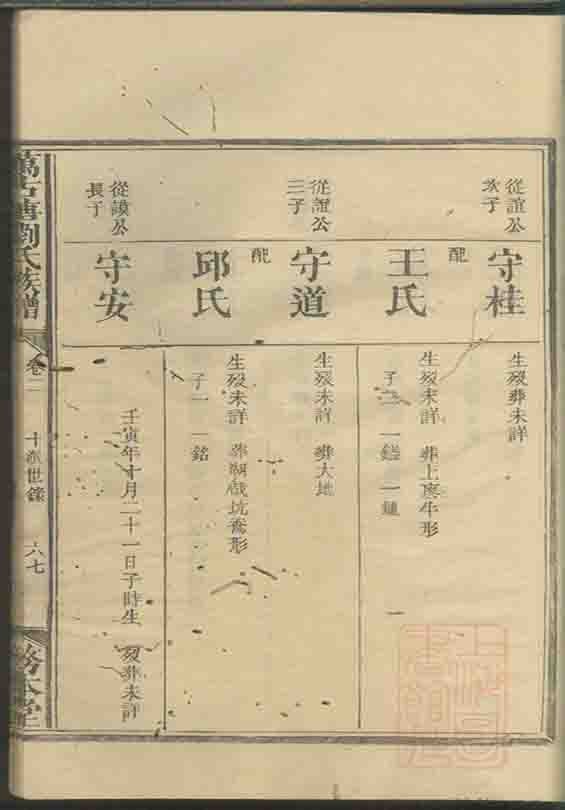 從誼公
次子
守桂
生歿葬未詳
配
王氏
生歿未詳 葬上塅牛形
子二 一鎰 一鍾
從誼公
三子
守道
生歿未詳 葬大地
配
邱氏
生歿未詳
子一 一銘
從謨公
長子
守安
壬寅年十月二十一日子時生 歿葬未詳
劉氏族譜
卷二
世錄
六七
務本堂